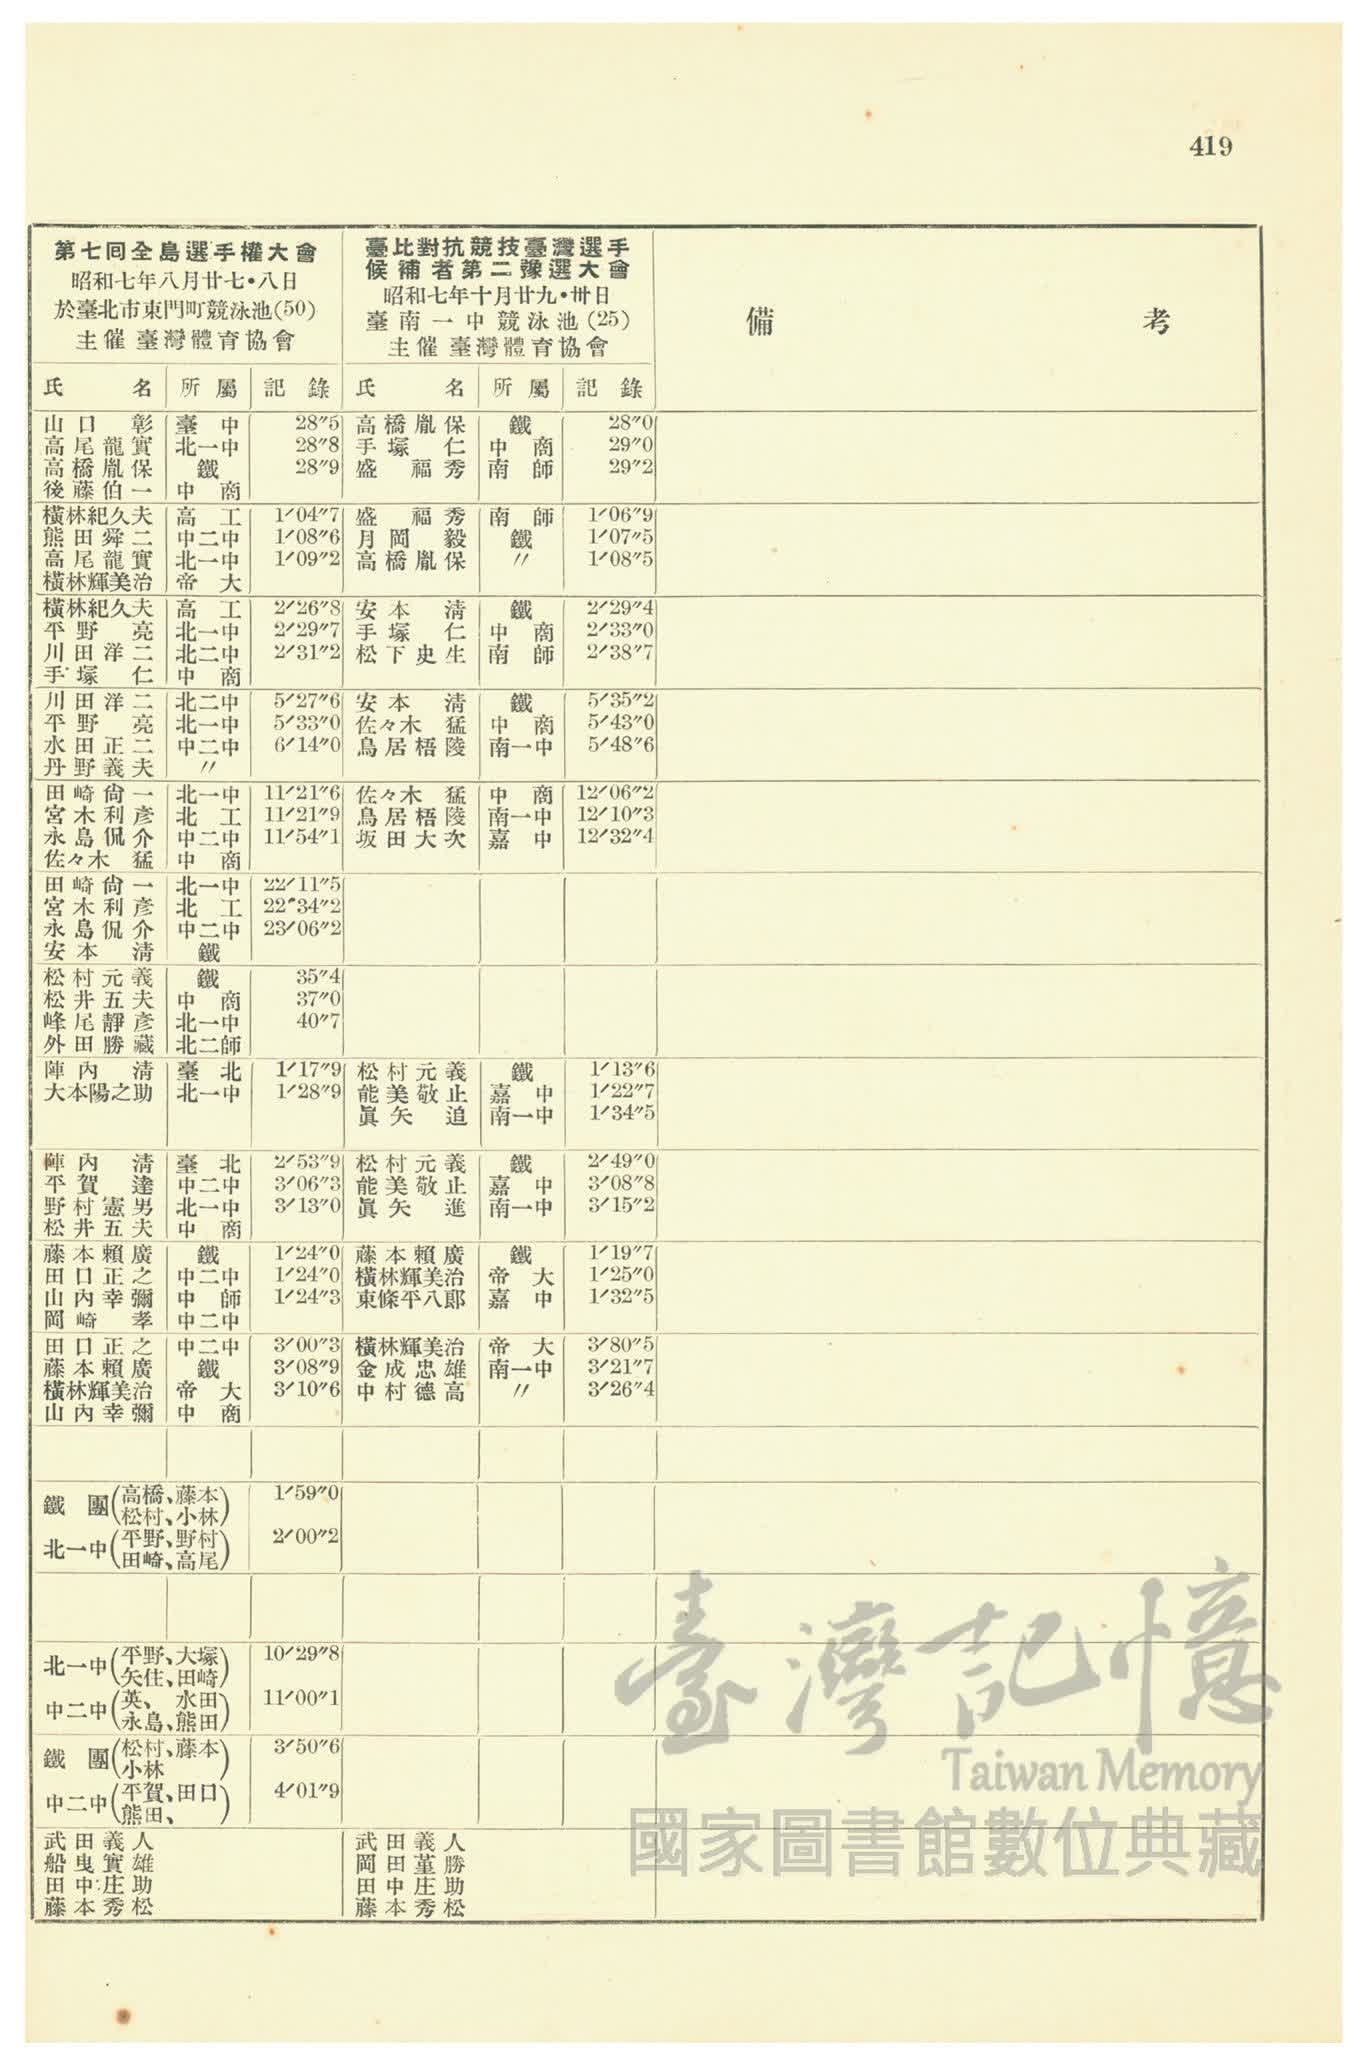 419
第七回全島選手權大會
昭和七年八月廿七・八日
於臺北市東門町競泳池(50)
主催 臺灣體育協會
臺比對抗競技臺灣選手
候補者第二豫選大會
昭和七年十月廿九・卅日
臺南一中競泳池(25)
主催 臺灣體育協會
備 考
氏 名 所屬 記錄 氏 名 所屬 記錄
山口彰 臺中 28″5 高橋胤保 鐵 28″0
高尾龍實 北一中 28″8 手塚仁 中商 29″0
高橋胤保 鐵 28″9 盛福秀 南師 29″2
後藤伯一 中商
橫林紀久夫 高工 1′04″7 盛福秀 南師 1′06″9
熊田舜二 中二中 1′08″6 月岡毅 鐵 1′07″5
高尾龍實 北一中 1′09″2 高橋胤保 〃 1′08″5
橫林輝美治 帝大
橫林紀久夫 高工 2′26″8 安本淸 鐵 2′29″4
平野亮 北一中 2′29″7 手塚仁 中商 2′33″0
川田洋二 北二中 2′31″2 松下史生 南師 2′38″7
手塚仁 中商
川田洋二 北二中 5′27″6 安本淸 鐵 5′35″2
平野亮 北一中 5′33″0 佐々木猛 中商 5′43″0
水田正二 中二中 6′14″0 鳥居梧陵 南一中 5′48″6
丹野義夫 〃
田崎尙一 北一中 11′21″6 佐々木猛 中商 12′06″2
宮木利彥 北工 11′21″9 鳥居梧陵 南一中 12′10″3
永島侃介 中二中 11′54″1 坂田大次 嘉中 12′32″4
佐々木猛 中商
田崎尙一 北一中 22′11″5
宮木利彥 北工 22″34″2
永島侃介 中二中 23′06″2
安本淸 鐵
松村元義 鐵 35″4
松井五夫 中商 37″0
峰尾靜彥 北一中 40″7
外田勝藏 北二師
陣內淸 臺北 1′17″9 松村元義 鐵 1′13″6
大本陽之助 北一中 1′28″9 能美敬止 嘉中 1′22″7
眞矢追 南一中 1′34″5
陣內淸 臺北 2′53″9 松村元義 鐵 2′49″0
平賀達 中二中 3′06″3 能美敬止 嘉中 3′08″8
野村憲男 北一中 3′13″0 眞矢進 南一中 3′15″2
松井五夫 中商
藤本賴廣 鐵 1′24″0 藤本賴廣 鐵 1′19″7
田口正之 中二中 1′24″0 橫林輝美治 帝大 1′25″0
山內幸彌 中師 1′24″3 東條平八郎 嘉中 1′32″5
岡崎孝 中二中
田口正之 中二中 3′00″3 橫林輝美治 帝大 3′80″5
藤本賴廣 鐵 3′08″9 金成忠雄 南一中 3′21″7
橫林輝美治 帝大 3′10″6 中村德高 〃 3′26″4
山內幸彌 中商
鐵團(高橋、藤本 1′59″0
松村、小林)
北一中(平野、野村 2′00″2
田崎、高尾)
北一中(平野、大塚 10′29″8
矢住、田崎)
中二中(英、水田 11′00″1
永島、熊田)
鐵團(松村、藤本 3′50″6
小林)
中二中(平賀、田口 4′01″9
熊田、)
武田義人 武田義人
船曳實雄 岡田菫勝
田中庄助 田中庄助
藤本秀松 藤本秀松
臺灣記憶
Taiwan Memory
國家圖書館數位典藏